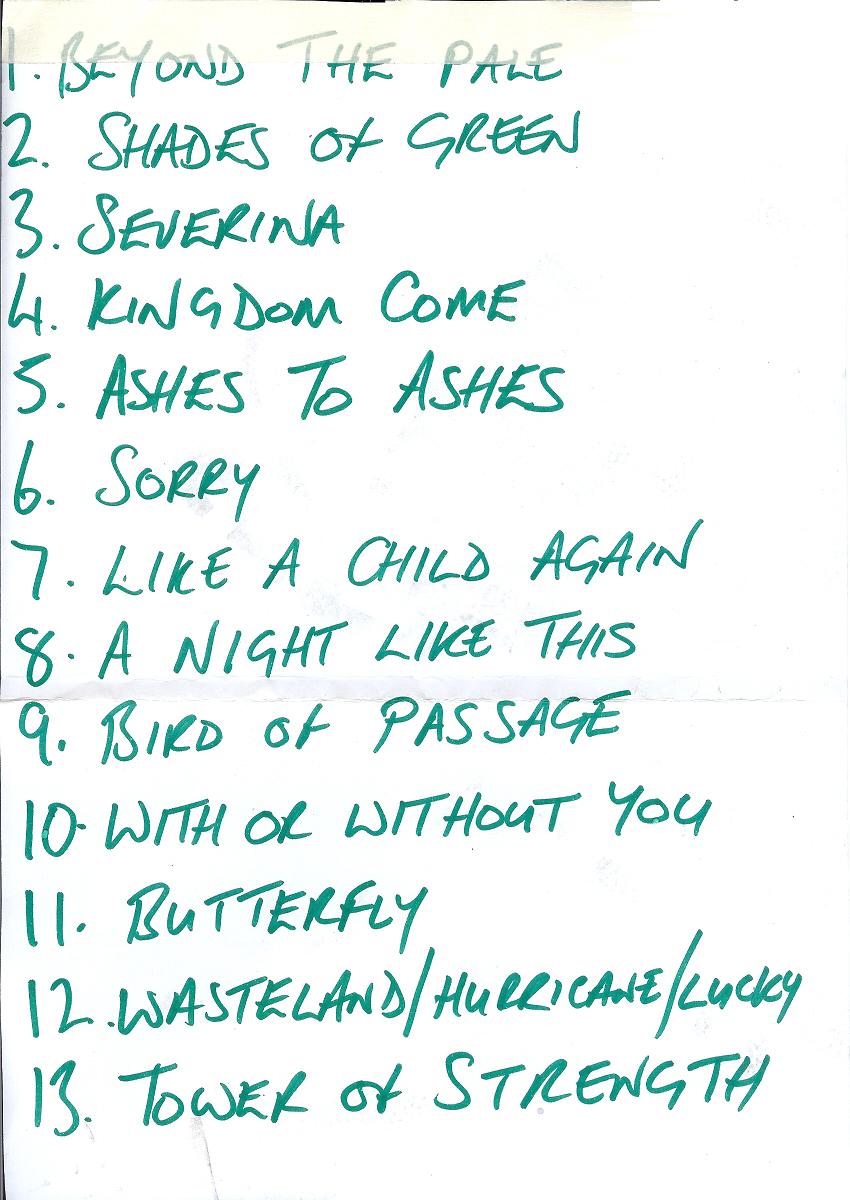 1. BEYOND THE PALE
2. SHADES OF GREEN
3. SEVERINA
4. KINGDOM COME
5. ASHES TO ASHES
6. SORRY
7. LIKE A CHILD AGAIN
8. A NIGHT LIKE THIS
9. BIRD OF PASSAGE
10. WITH OR WITHOUT YOU
11. BUTTERFLY
12. WASTELAND/HURRICANE/LUCKY
13. TOWER OF STRENGTH